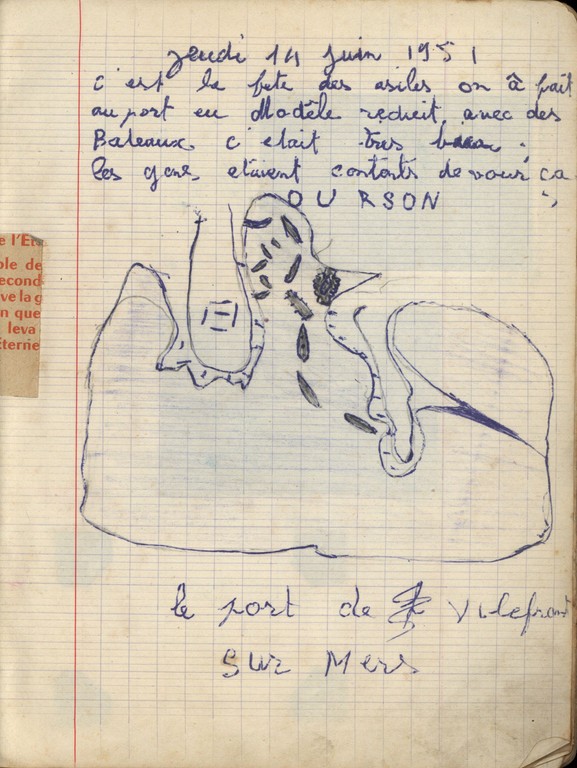 jeudi 14 juin 1951
c'est la fete des asiles on â fait
au port en Modêle reduit, avec des
Bateaux c'etait tres
les gens etaient contents de voir ça
OURSON
e l'Et
ole de
econd
ve la g
n que
leva
terne
le port de Vilefrant
sur Mers